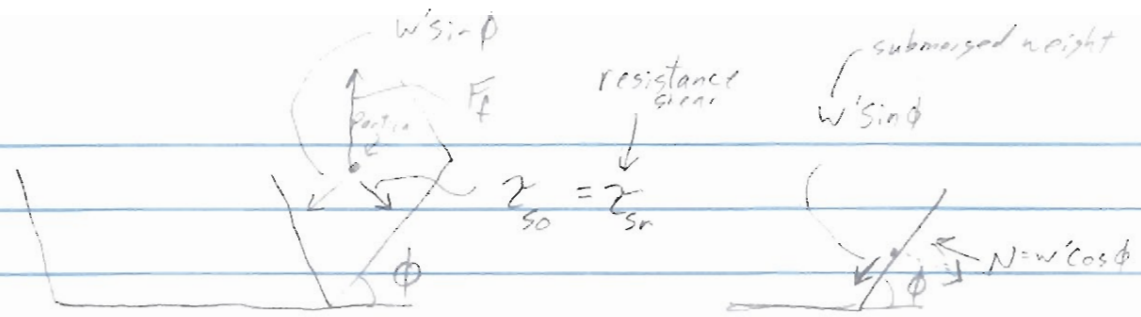 w'sin ϕ
F_f
particle
τ_so = τ_sr
resistance
shear
ϕ
submerged weight
w'sin ϕ
N = w'cos ϕ
ϕ